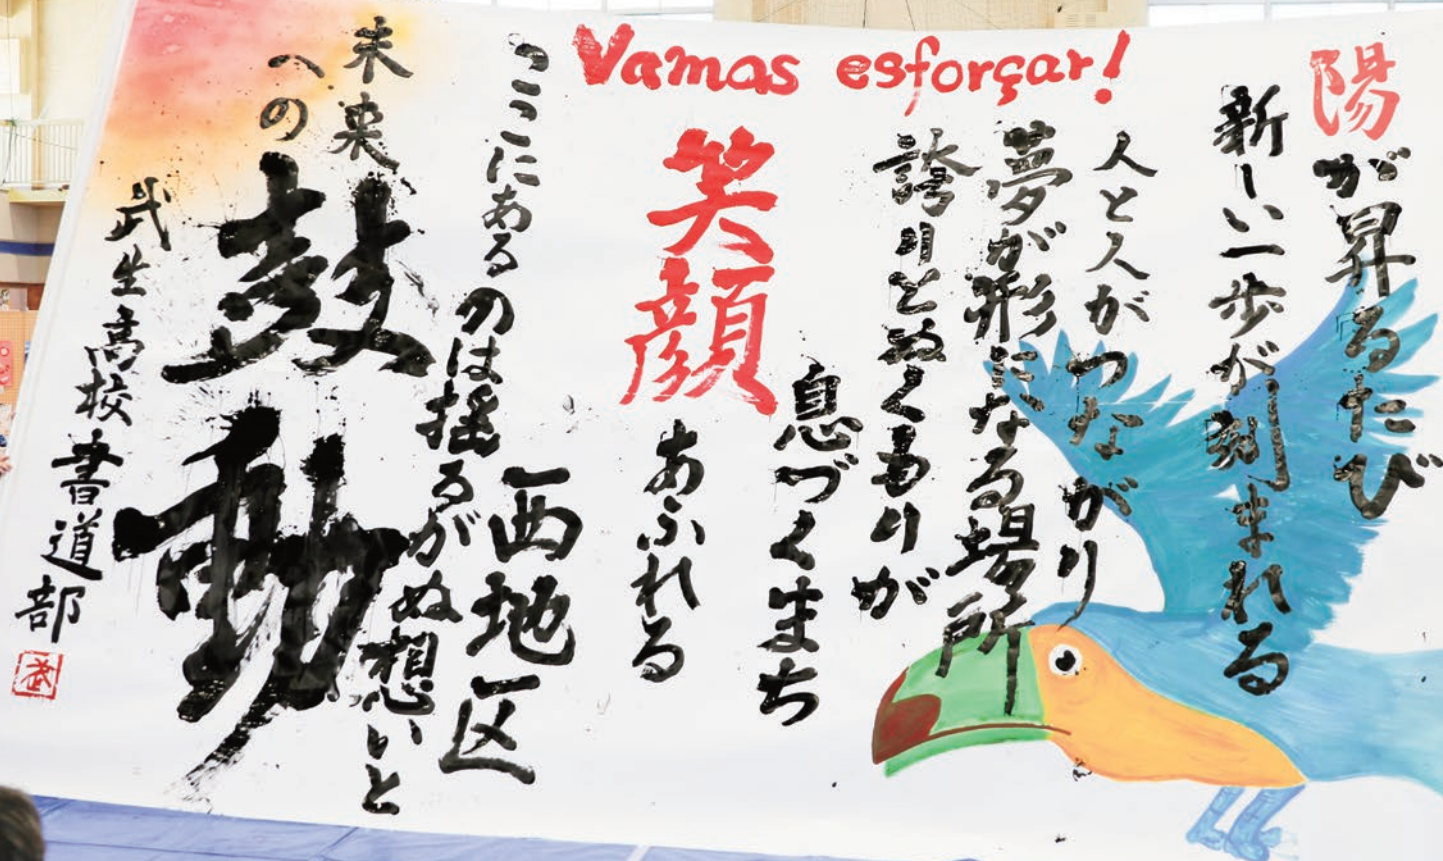 Vamos esforçar!
陽が昇るたび
新しい一歩が刻まれる
人と人がつながり
夢が形になる場所
誇りとぬくもりが
息づくまち
笑顔あふれる
西地区
ここにあるのは揺るがぬ想いと
未来への
鼓動
武生高校書道部
武